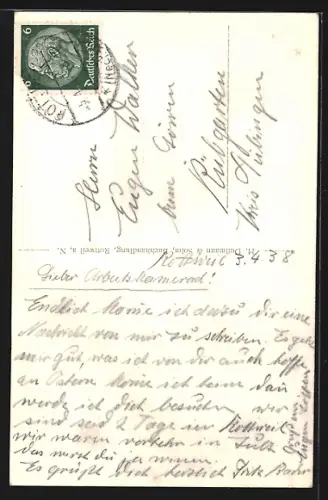 6
Deutsches Reich
Herrn
Eugen Walker
Rübgarten
Kreis Tübingen
Rothmann & Sohn, Buchhandlung, Rottweil a. N.
Rottweil 3.4.38
Lieber Arbeitskamerad!
Endlich komme ich dazu dir eine
Nachricht von mir zu schreiben. Es geht
mir gut, was ich von dir auch hoffe
an Ostern komme ich heim dan
werde ich dich besuchen wir
sind seid 2 Tage in Rottweil
wir waren vorher in Sulz
das wirst du ja wissen.
Es grüßt dich herzlich